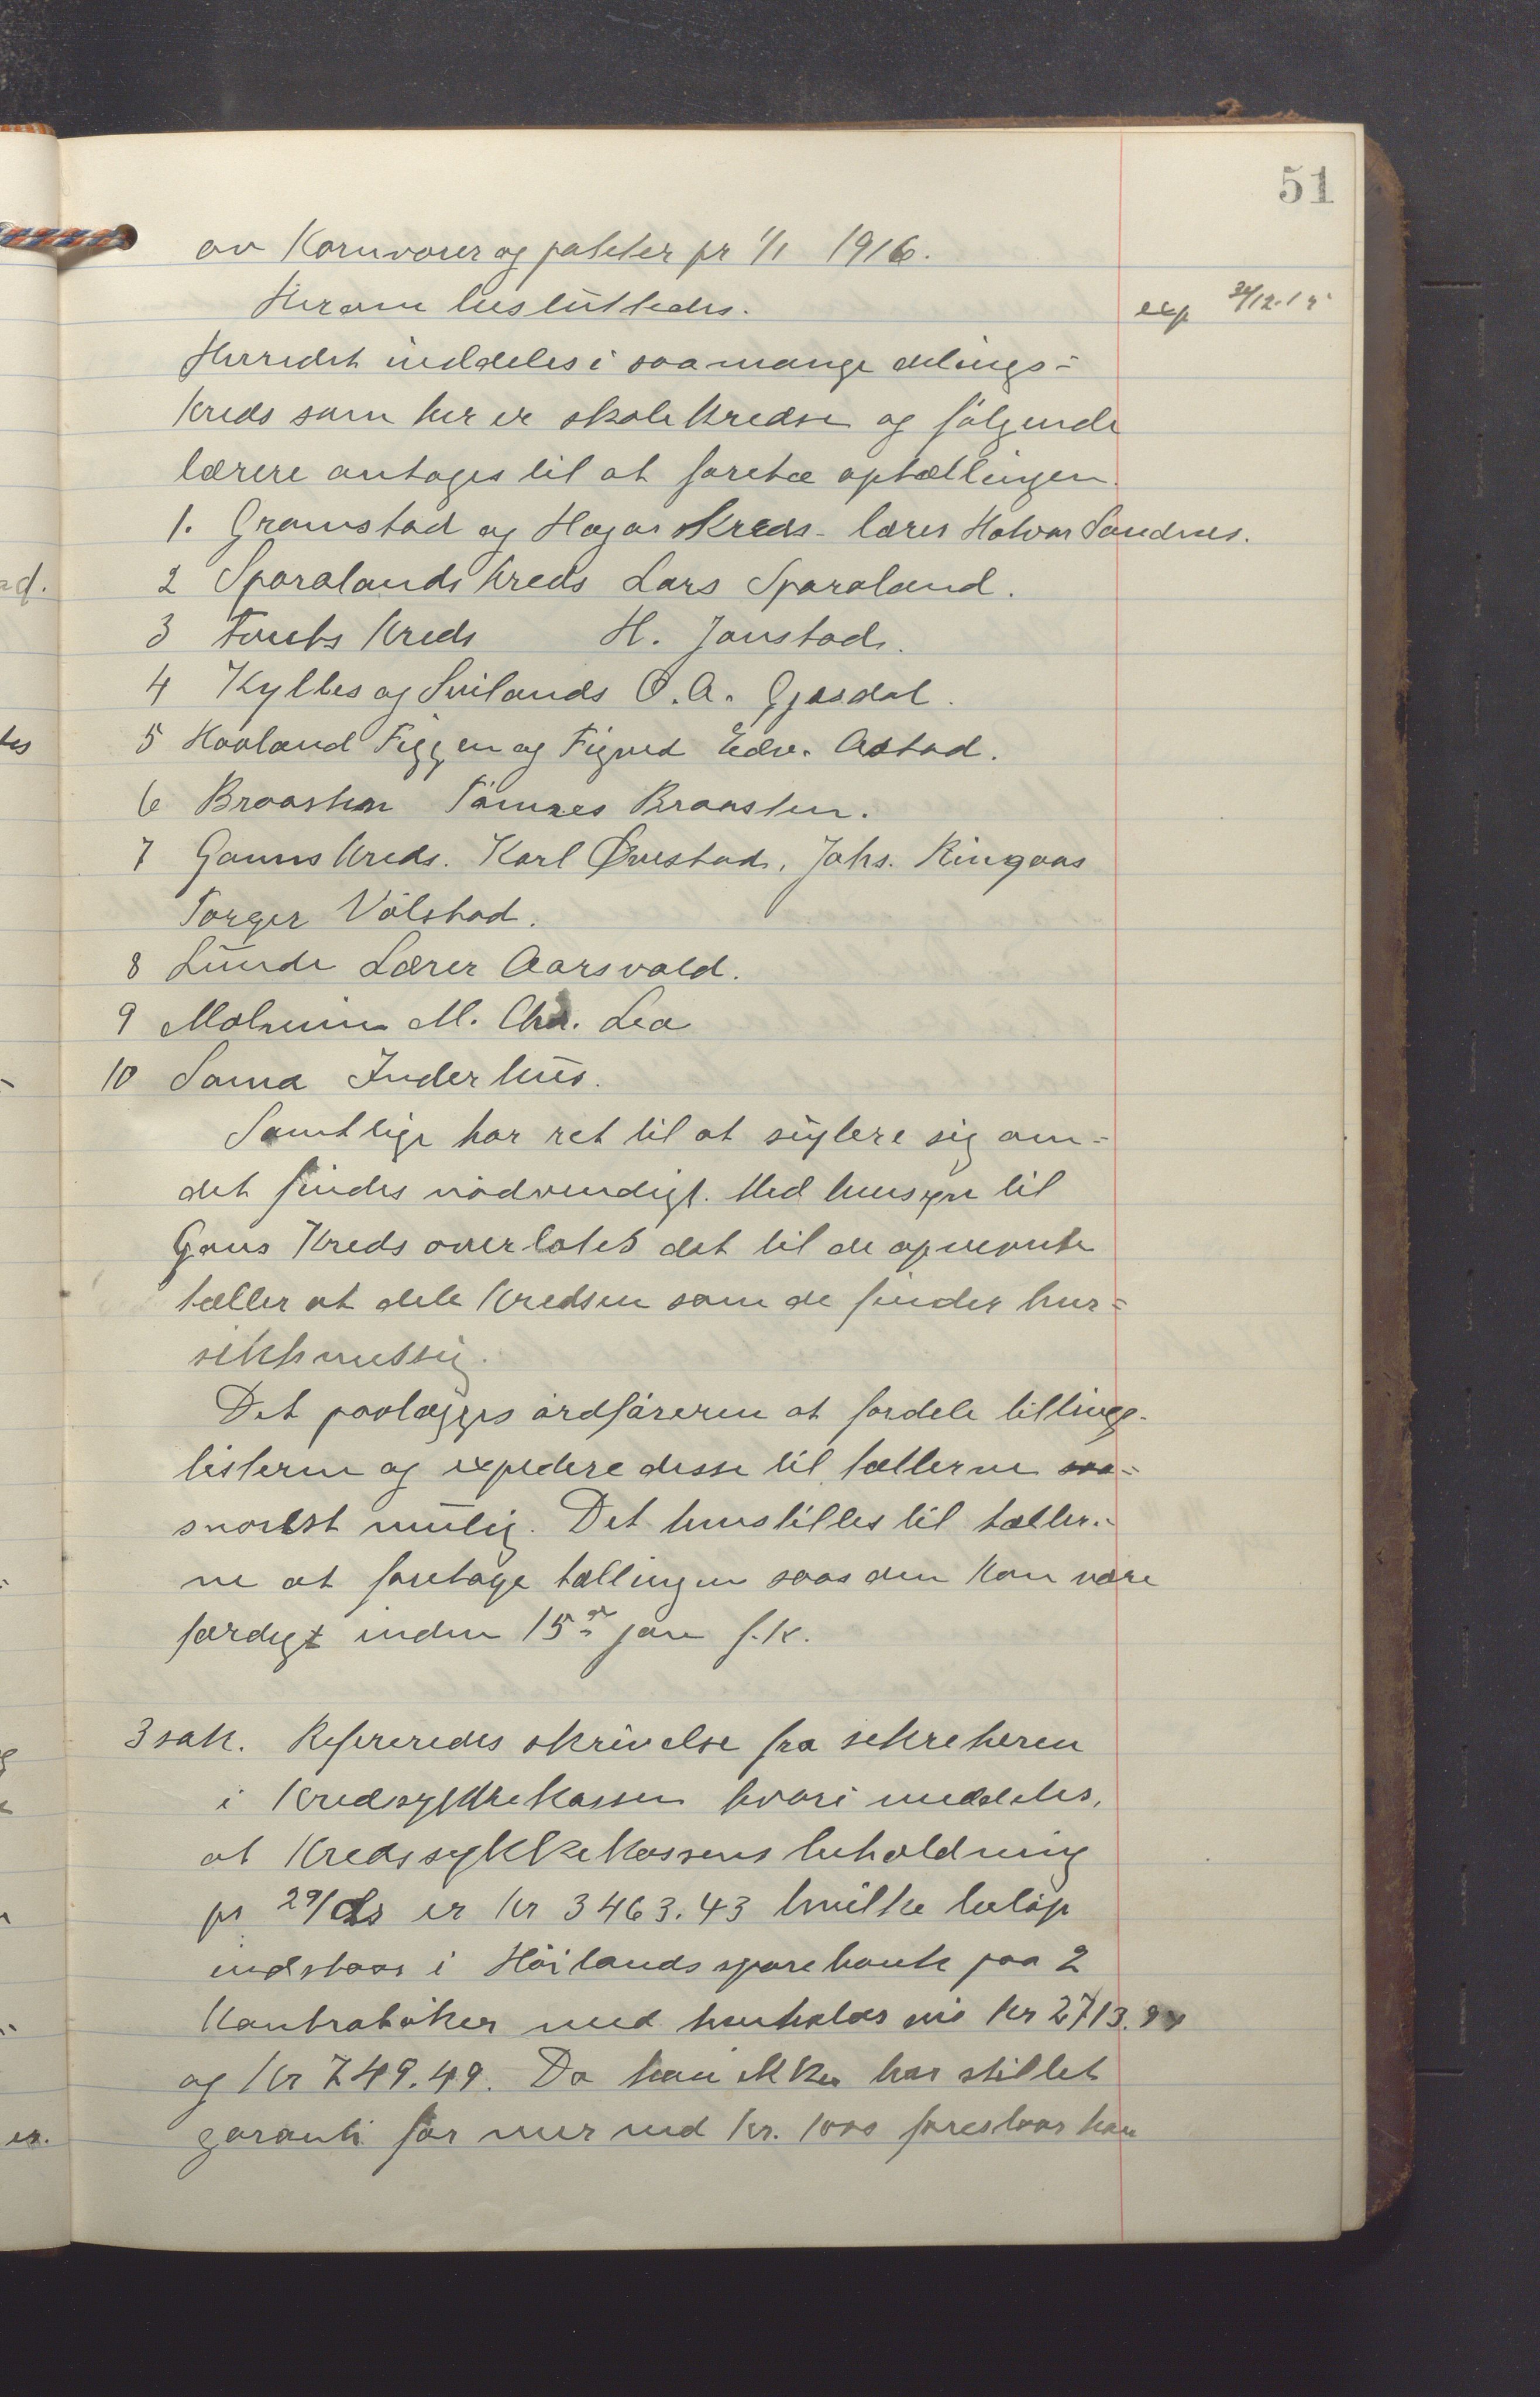 51
av Kornvarer og poteter pr 1/1 1916.
Herom besluttedes.
exp 31/12.15
Herredet inddeles i saamange delings-
kreds som her er skolekredse og følgende
lærere antages til at foreta optællingen.
1. Gramstad og Hogas Kreds - lærer Halvar Sandnes.
2 Sporalands kreds Lars Sporaland.
3 Kreds H. Jonstad.
4 Kylles og Svilands O. A. Gjesdal.
5 Hooland Figgen og Figved Edv. Astad.
6 Braasten Tønnes Braasten.
7 Gauns Kreds. Karl Øvestad, Johs. Ringaas
Torger Vølstad.
8 Lunde Lærer Aarsvold.
9 Malmein M. Chr. Lea
10 Soma Inderhus.
Samtlige har ret til at suplere sig om-
det findes nødvendigt. Med hensyn til
Gans Kreds overlates det til de opnevnte
tæller at dele Kredsen som de finder hen-
sikts messig.
Det paalægges ordføreren at fordele tellings-
listerne og expedere disse til tællerne saa-
snarest mulig. Det henstilles til tæller-
ne at foretage tællingen saa den kan være
færdigt inden 15de jan f.k.
3 sak. Refereredes skrivelse fra sekreteren
i Kredsykkekassen hvori meddeles,
at Kredssykkekassens beholdning
pr 29/ds er kr 3463.43 hvilke beløp
indstaar i Höilands sparebank paa 2
Kontrabøker med henholds vis kr 2713.94
og kr 749.49. Da han ikke har stillet
garanti for mer end kr. 1000 foreslaar han